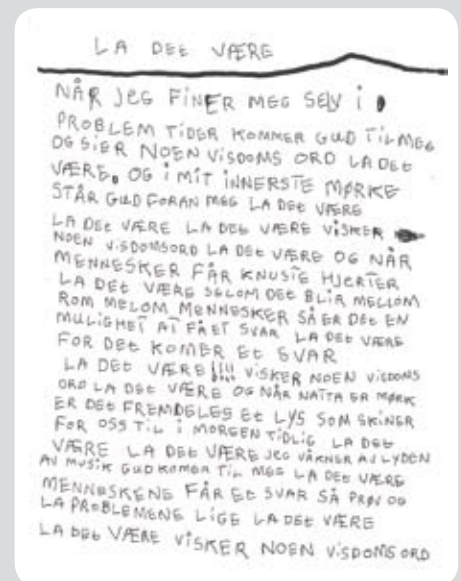 LA DEt VÆRE
NÅR JEG FINER MEG SELV i
PROBLEM TiDER KOMMER GUD TiL MEG
OG SiER NOEN ViSDOMS ORD LA DEt
VÆRE. OG i MiT iNNERSTE MØRKE
STÅR GUD FORAN MEG LA DEt VÆRE
LA DEt VÆRE LA DEt VÆRE ViSKER
NOEN ViSDOMSORD LA DEt VÆRE OG NÅR
MENNESKER FÅR KNUSTE HJERTER
LA DEt VÆRE SELOM DEt BLiR MELLOM
ROM MELOM MENNESKER SÅ ER DEt EN
MULiGHET AT FÅ ET SVAR LA DEt VÆRE
FOR DEt KOMER Et SVAR
LA DEt VÆRE!!!! ViSKER NOEN ViSDOMS
ORD LA DEt VÆRE OG NÅR NATTA ER MØRK
ER DEt FREMDELES Et LYS SOM SKiNER
FOR OSS TiL i MORGEN TiDLiG LA DEt
VÆRE LA DEt VÆRE JEG VÅKNER AV LYDEN
AV MUSiK GUD KOMER TiL MEG LA DEt VÆRE
MENNESKENE FÅR Et SVAR SÅ PRØV OG
LA PROBLEMENE LiGE LA DEt VÆRE
LA DEt VÆRE ViSKER NOEN ViSDOMS ORD